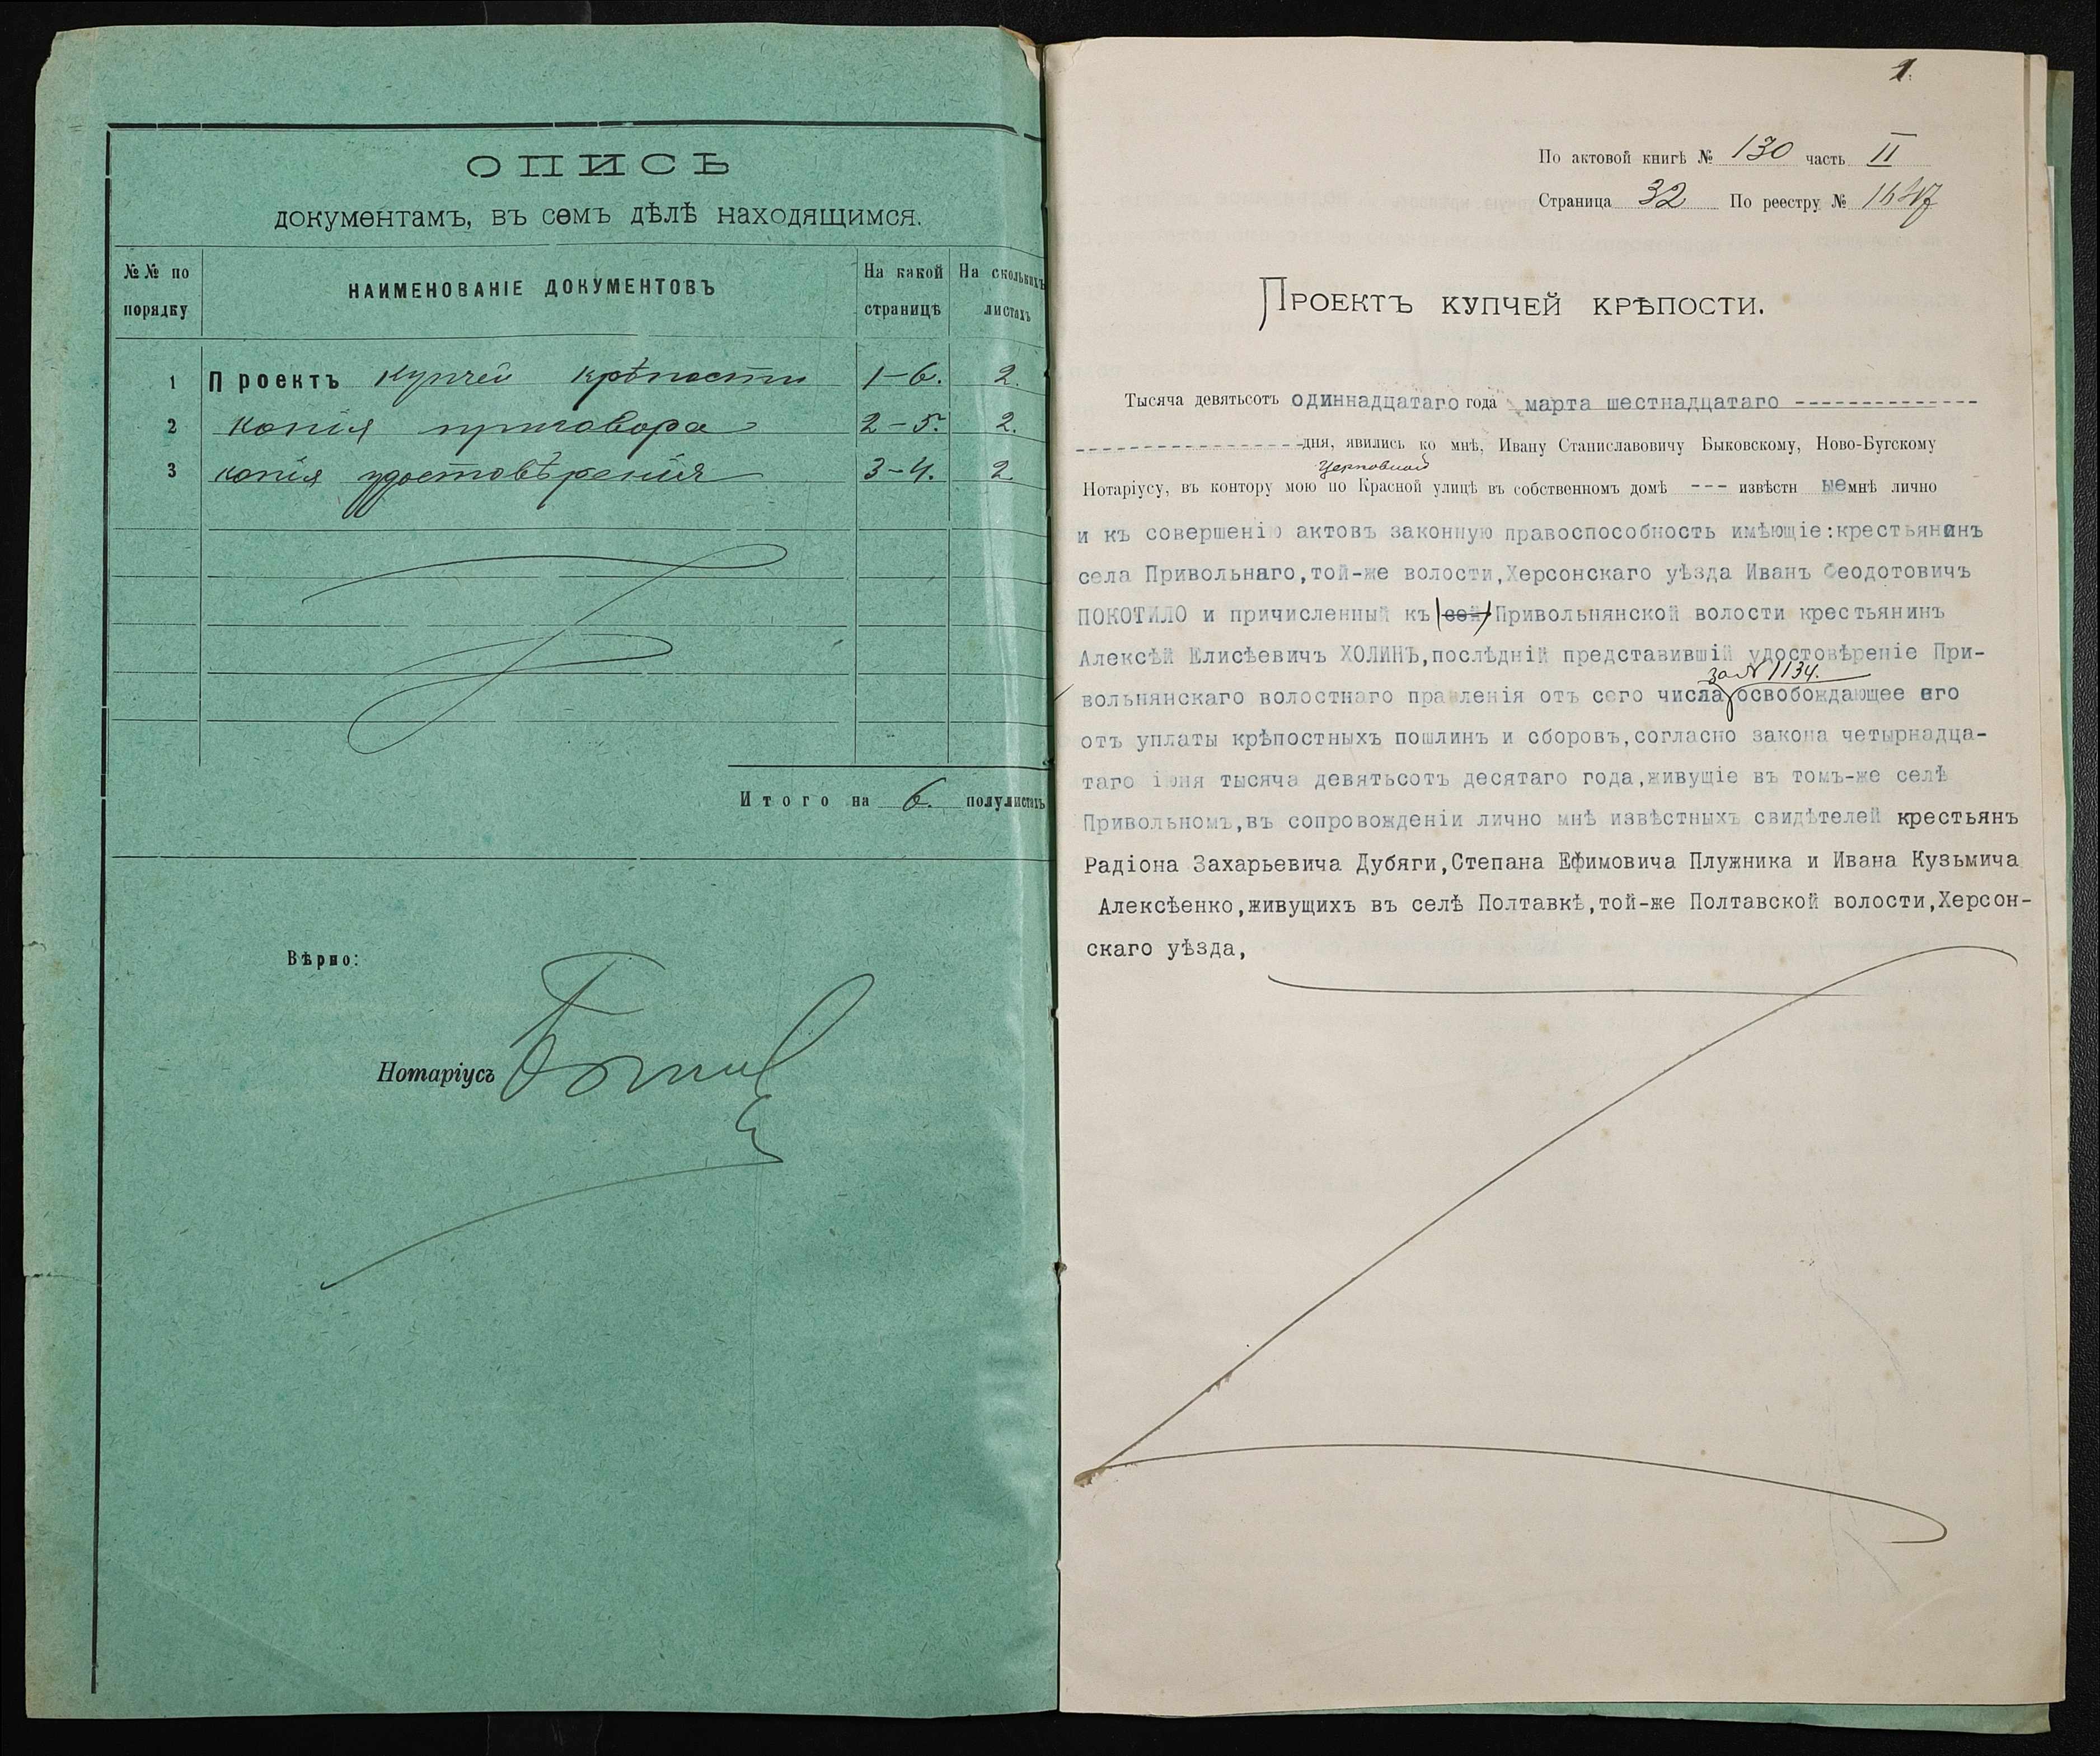 ОПИСЬ
документамъ, въ семъ дѣлѣ находящимся.
№№ по порядку
НАИМЕНОВАНІЕ ДОКУМЕНТОВЪ
На какой страницѣ
На сколькихъ листахъ
1 Проектъ купчей крѣпости 1-6. 2.
2 копія приговора 2-5. 2.
3 копія удостовѣренія 3-4. 2
Итого на 6. полулистахъ
Вѣрно:
Нотаріусъ
1.
По актовой книгѣ № 130 часть II
Страница 32 По реестру №
Проектъ купчей крѣпости.
Тысяча девятьсотъ одиннадцатаго года марта шестнадцатаго --------------
------------------дня, явились ко мнѣ, Ивану Станиславовичу Быковскому, Ново-Бугскому
Нотаріусу, въ контору мою по Красной улицѣ въ собственномъ домѣ --- извѣстн ые мнѣ лично
и къ совершенію актовъ законную правоспособность имѣющіе:крестьянинъ
села Привольнаго,той-же волости,Херсонскаго уѣзда Иванъ Ѳеодотовичъ
ПОКОТИЛО и причисленный къ (сей) Привольнянской волости крестьянинъ
Алексѣй Елисѣевичъ ХОЛИНЪ,послѣдній представившій удостовѣреніе При-
за № 1134.
вольнянскаго волостнаго правленія отъ сего числа освобождающее его
отъ уплаты крѣпостныхъ пошлинъ и сборовъ,согласно закона четырнадца-
таго іюня тысяча девятьсотъ десятаго года,живущіе въ томъ-же селѣ
Привольномъ,въ сопровожденіи лично мнѣ извѣстныхъ свидѣтелей крестьянъ
Радіона Захарьевича Дубяги,Степана Ефимовича Плужника и Ивана Кузьмича
Алексѣенко,живущихъ въ селѣ Полтавкѣ,той-же Полтавской волости,Херсон-
скаго уѣзда,